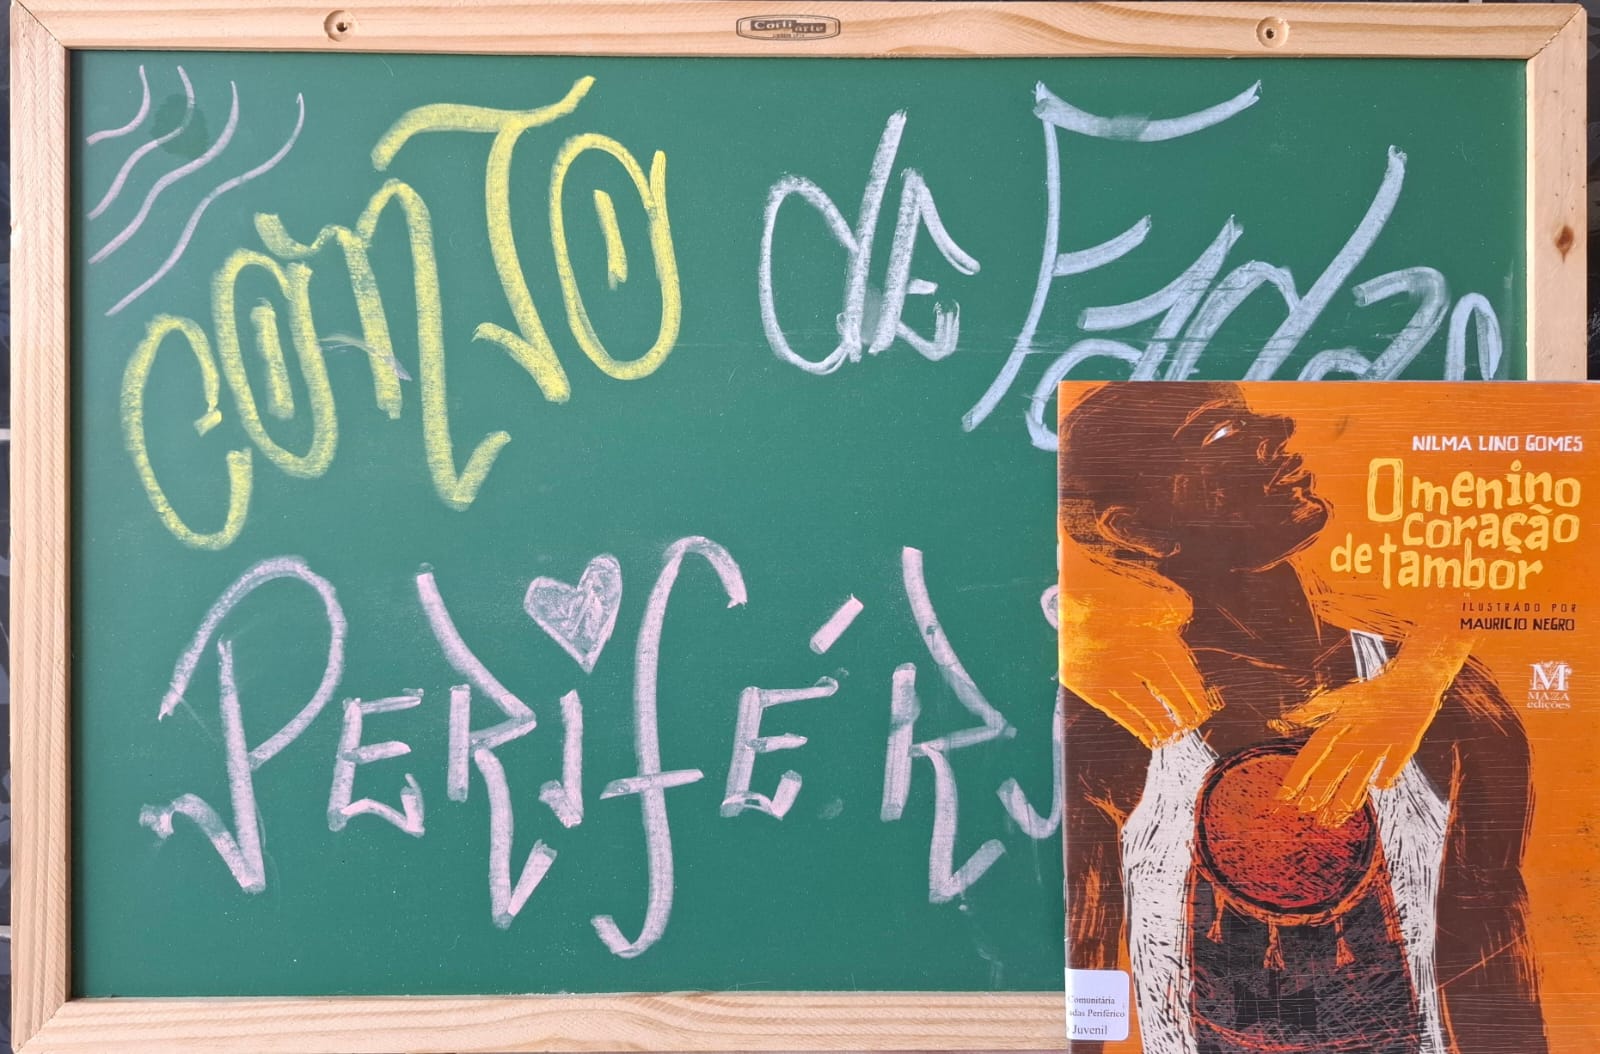 Corti arte
CONTO de Fadas
PERIFÉRI
NILMA LINO GOMES
O menino
coração
de tambor
ILUSTRADO POR
MAURICIO NEGRO
M
MAZA
edições
Comunitária
adas Periférico
Juvenil